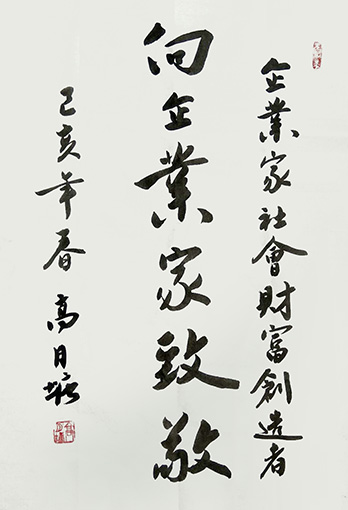 企業家社會財富創造者
向企業家致敬
己亥年春
高月